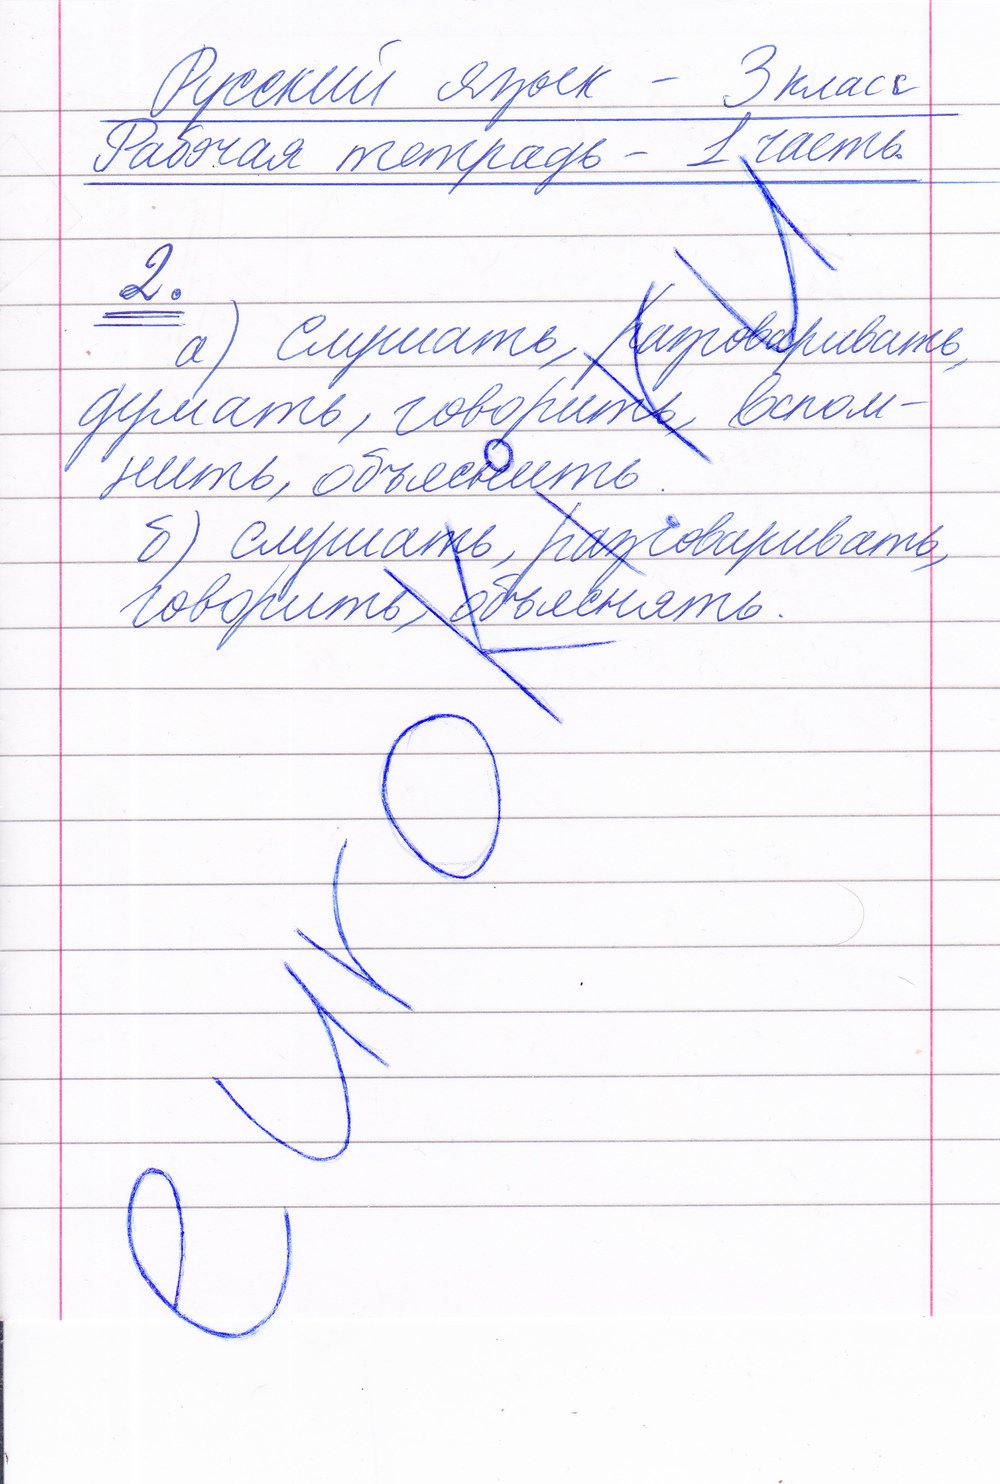 Русский язык - 3 класс
Рабочая тетрадь - 1 часть.
2.
а) слушать, разговаривать,
думать, говорить, вспом-
нить, объяснить.
б) слушать, разговаривать,
говорить, объяснять.
еигоКК°.КИ